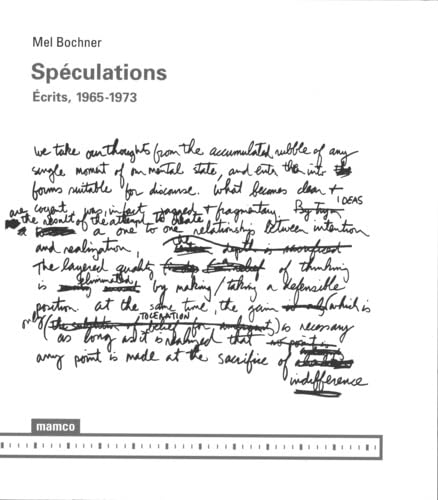 Mel Bochner
Spéculations
Écrits, 1965-1973
we take our thoughts from the accumulated rubble of any
single moment of our mental state, and enter them into the
forms suitable for discourse. What becomes clear +
IDEAS
are cogent, was, in fact, vague + fragmentary. By trying
the result of the attempt to create
a one to one relationship between intention
and realization, the depth is sacrificed
The layered quality of thinking
is eliminated by making/taking a defensible
position. at the same time, the gain (which is
only
TOLERATION
(the substitution of belief for) is necessary
as long as it is realized that no point is
any point is made at the sacrifice of
indifference
mamco